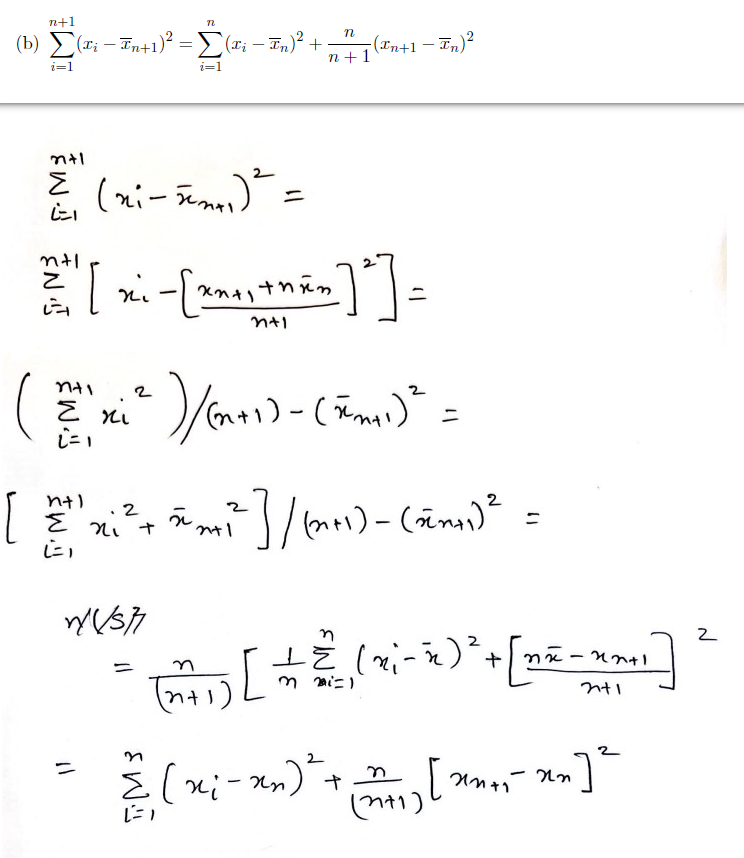 (b) \sum_{i=1}^{n+1} (x_i - \overline{x}_{n+1})^2 = \sum_{i=1}^{n} (x_i - \overline{x}_n)^2 + \frac{n}{n+1}(x_{n+1} - \overline{x}_n)^2
\sum_{i=1}^{n+1} (x_i - \bar{x}_{n+1})^2 =
\sum_{i=1}^{n+1} [ x_i - [ \frac{x_{n+1} + n\bar{x}_n}{n+1} ]^2 ] =
( \sum_{i=1}^{n+1} x_i^2 ) / (n+1) - (\bar{x}_{n+1})^2 =
[ \sum_{i=1}^{n+1} x_i^2 + \bar{x}_{n+1}^2 ] / (n+1) - (\bar{x}_{n+1})^2 =
= \frac{n}{(n+1)} [ \frac{1}{n} \sum_{i=1}^{n} (x_i - \bar{x})^2 + [ \frac{n\bar{x} - x_{n+1}}{n+1} ]^2
= \sum_{i=1}^{n} (x_i - x_n)^2 + \frac{n}{(n+1)} [ x_{n+1} - x_n ]^2